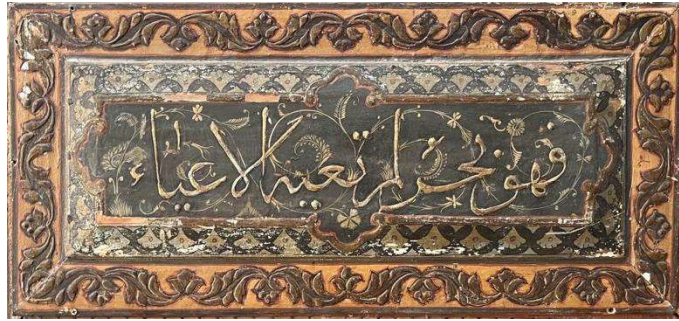 فهو بحر لم تعيه الاعباء